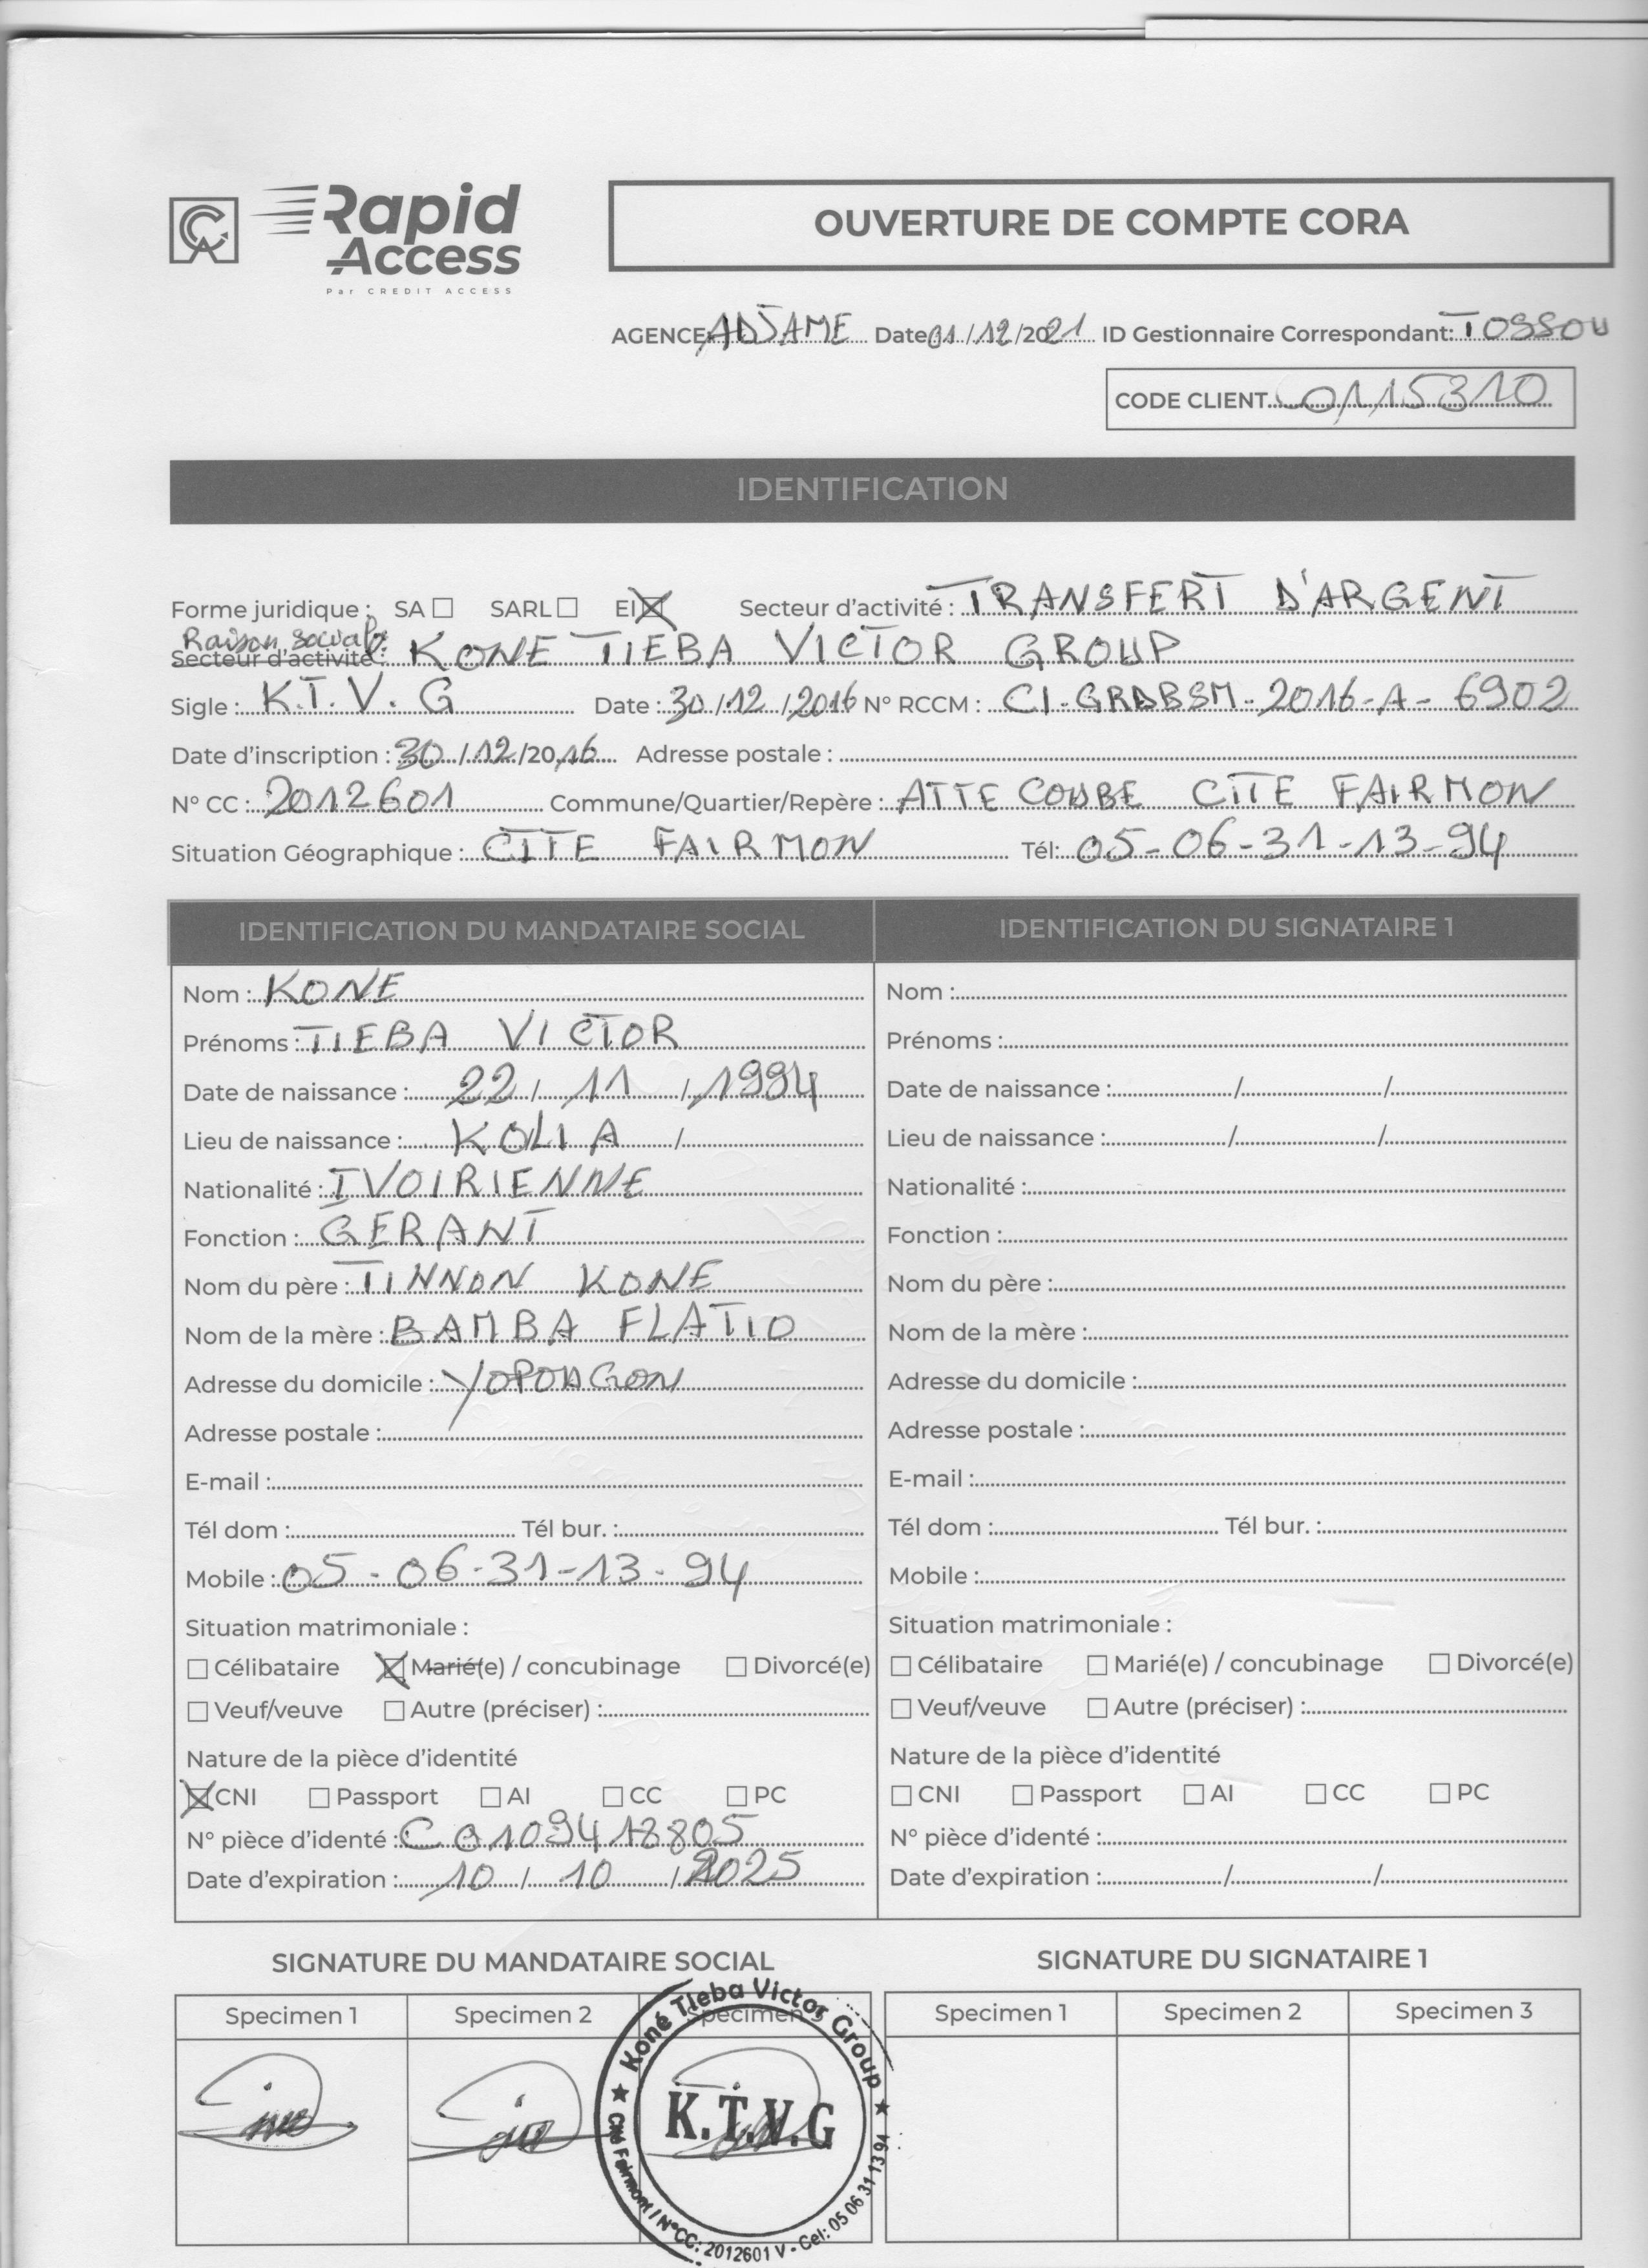 Rapid Access
Par CREDIT ACCESS
OUVERTURE DE COMPTE CORA
AGENCE: ADJAME Date 01/12/2021 ID Gestionnaire Correspondant: TOSSOU
CODE CLIENT 0115310
IDENTIFICATION
Forme juridique : SA ☐ SARL ☐ EI ☒ Secteur d'activité : TRANSFERT D'ARGENT
Raison sociale:
Secteur d'activité : KONE TIEBA VICTOR GROUP
Sigle : K.T.V.G Date : 30/12/2016 N° RCCM : CI-GRDBSM-2016-A-6902
Date d'inscription : 30/12/2016 Adresse postale :
N° CC : 2012601 Commune/Quartier/Repère : ATTE COUBE CITE FAIRMON
Situation Géographique : CITE FAIRMON Tél: 05-06-31-13-94
IDENTIFICATION DU MANDATAIRE SOCIAL
Nom : KONE
Prénoms : TIEBA VICTOR
Date de naissance : 22/11/1994
Lieu de naissance : KOLIA /
Nationalité : IVOIRIENNE
Fonction : GERANT
Nom du père : TINNON KONE
Nom de la mère : BAMBA FLATIO
Adresse du domicile : YOPOUGON
Adresse postale :
E-mail :
Tél dom : Tél bur. :
Mobile : 05-06-31-13-94
Situation matrimoniale :
☐ Célibataire ☒ Marié(e) / concubinage ☐ Divorcé(e)
☐ Veuf/veuve ☐ Autre (préciser) :
Nature de la pièce d'identité
☒ CNI ☐ Passport ☐ AI ☐ CC ☐ PC
N° pièce d'identé : C 0109418805
Date d'expiration : 10/10/2025
IDENTIFICATION DU SIGNATAIRE 1
Nom :
Prénoms :
Date de naissance : / /
Lieu de naissance : / /
Nationalité :
Fonction :
Nom du père :
Nom de la mère :
Adresse du domicile :
Adresse postale :
E-mail :
Tél dom : Tél bur. :
Mobile :
Situation matrimoniale :
☐ Célibataire ☐ Marié(e) / concubinage ☐ Divorcé(e)
☐ Veuf/veuve ☐ Autre (préciser) :
Nature de la pièce d'identité
☐ CNI ☐ Passport ☐ AI ☐ CC ☐ PC
N° pièce d'identé :
Date d'expiration : / /
SIGNATURE DU MANDATAIRE SOCIAL
Specimen 1 Specimen 2 Specimen 3
Koné Tieba Victor Group
K.T.V.G
Cité Fairmont / N°CC: 2012601 V - Cel: 05 06 31 13 94
SIGNATURE DU SIGNATAIRE 1
Specimen 1 Specimen 2 Specimen 3